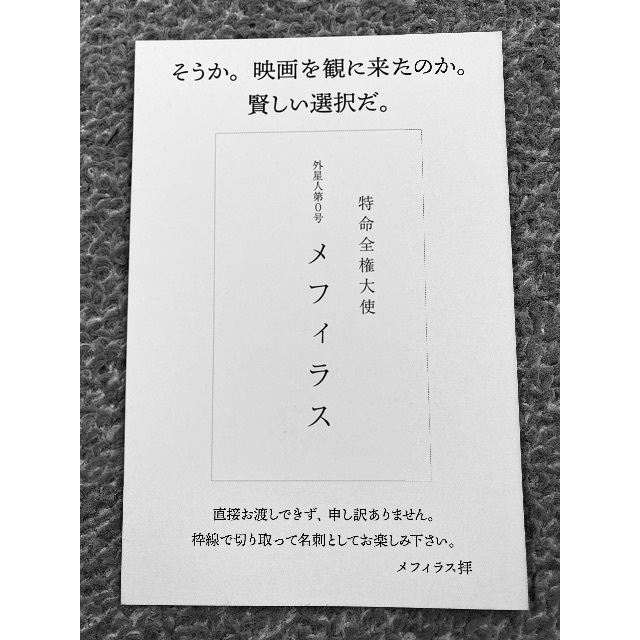 そうか。映画を観に来たのか。
賢しい選択だ。
特命全権大使
外星人第0号
メフィラス
直接お渡しできず、申し訳ありません。
枠線で切り取って名刺としてお楽しみ下さい。
メフィラス拝